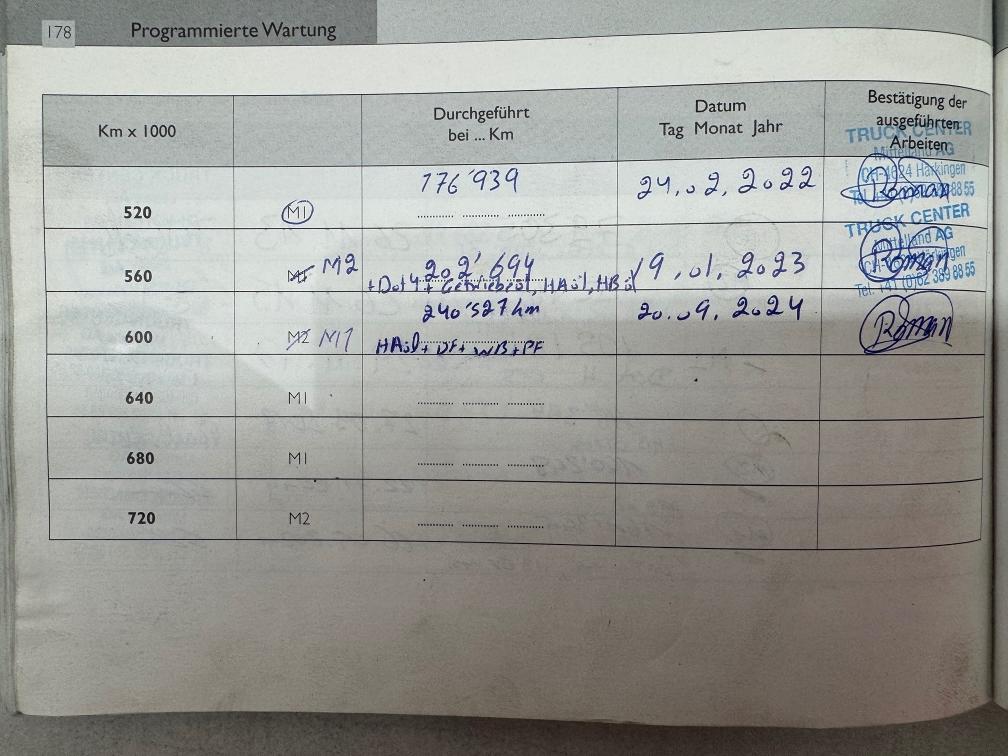 178 Programmierte Wartung
Km x 1000
Durchgeführt
bei ... Km
Datum
Tag Monat Jahr
Bestätigung der
ausgeführten
Arbeiten
TRUCK CENTER
Mittelland AG
CH-4624 Härkingen
176'939 24.02.2022 Roman
520 M1
TRUCK CENTER
Mittelland AG
Tel. +41 (0)62 389 88 55
560 M1 M2 202'694 19.01.2023 Roman
+Dot4+ Getriebeöl, HAöl, HBöl
240'527 km 20.09.2024 Roman
600 M2 M1
HAöl+ DF+ WB+PF
640 M1
680 M1
720 M2